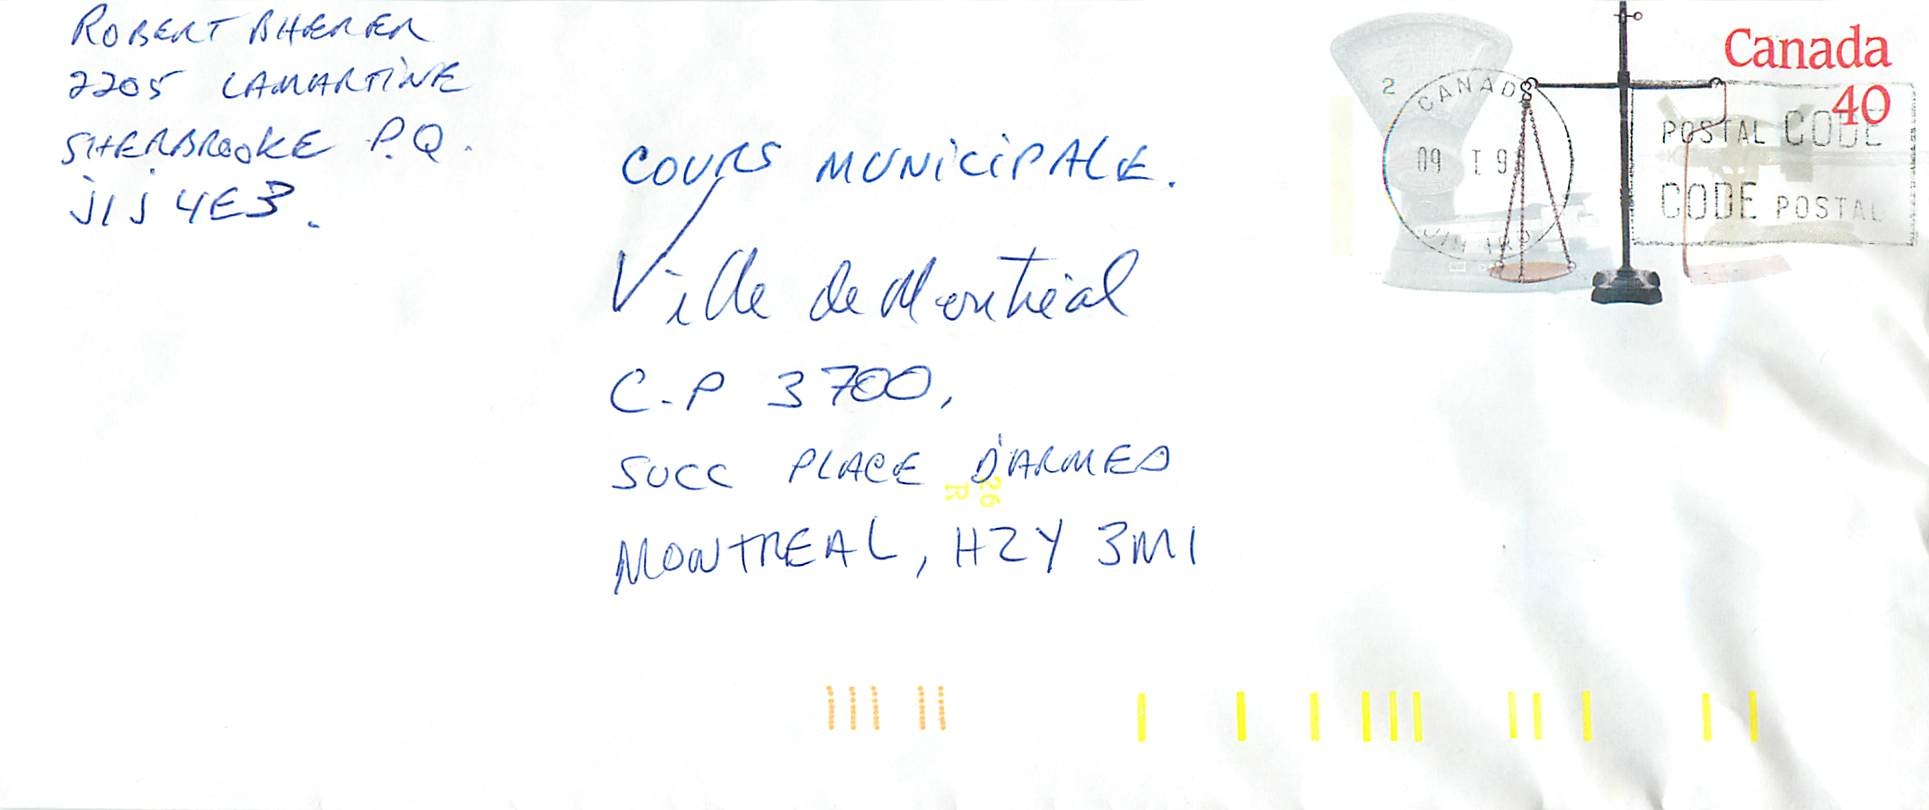 ROBERT BHERER
2205 LAMARTINE
SHERBROOKE P.Q.
J1J 4E3.
COURS MUNICIPALE.
Ville de Montréal
C.P 3700,
SUCC PLACE D'ARMES
MONTREAL, H2Y 3M1
Canada
40
2
CANADA
09
POSTAL CODE
CODE POSTAL
26
R